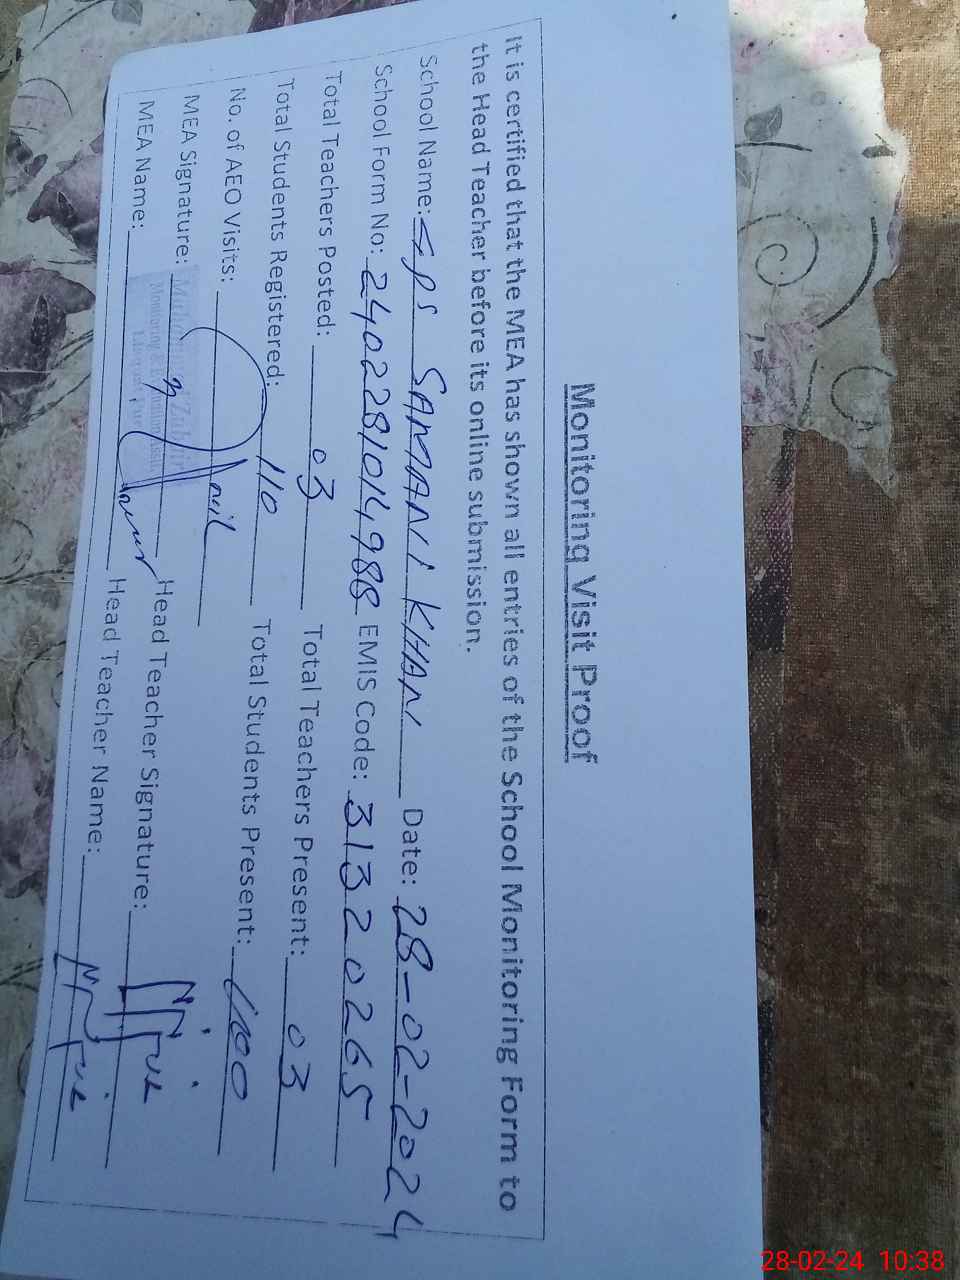 Monitoring Visit Proof
It is certified that the MEA has shown all entries of the School Monitoring Form to
the Head Teacher before its online submission.
School Name: GPS SAMANI KHAN Date: 28-02-2024
School Form No: 2402281014988 EMIS Code: 31320265
Total Teachers Posted: 03 Total Teachers Present: 03
Total Students Registered: 110 Total Students Present: 100
No. of AEO Visits: Nil
MEA Signature: Head Teacher Signature:
MEA Name: Head Teacher Name:
28-02-24 10:38